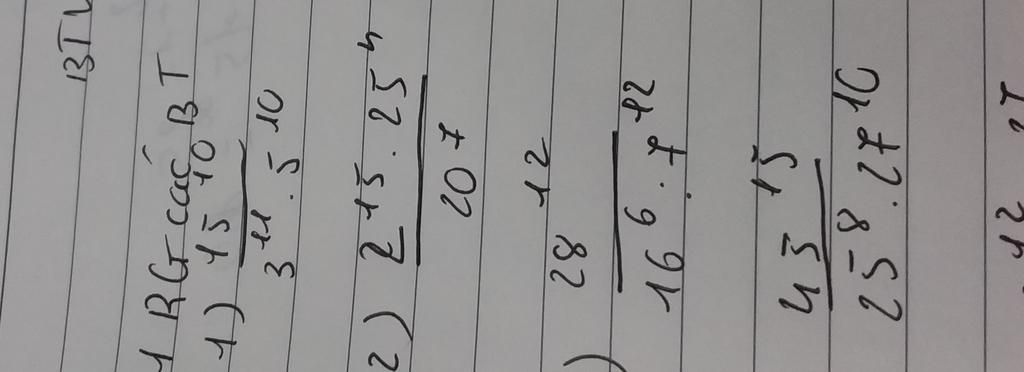 BTV
1 RG các BT
1) 15^10 / 3^11 . 5^10
2) 2^15 . 25^4 / 20^7
) 28^12 / 16^6 . 7^12
45^15 / 25^8 . 27^10